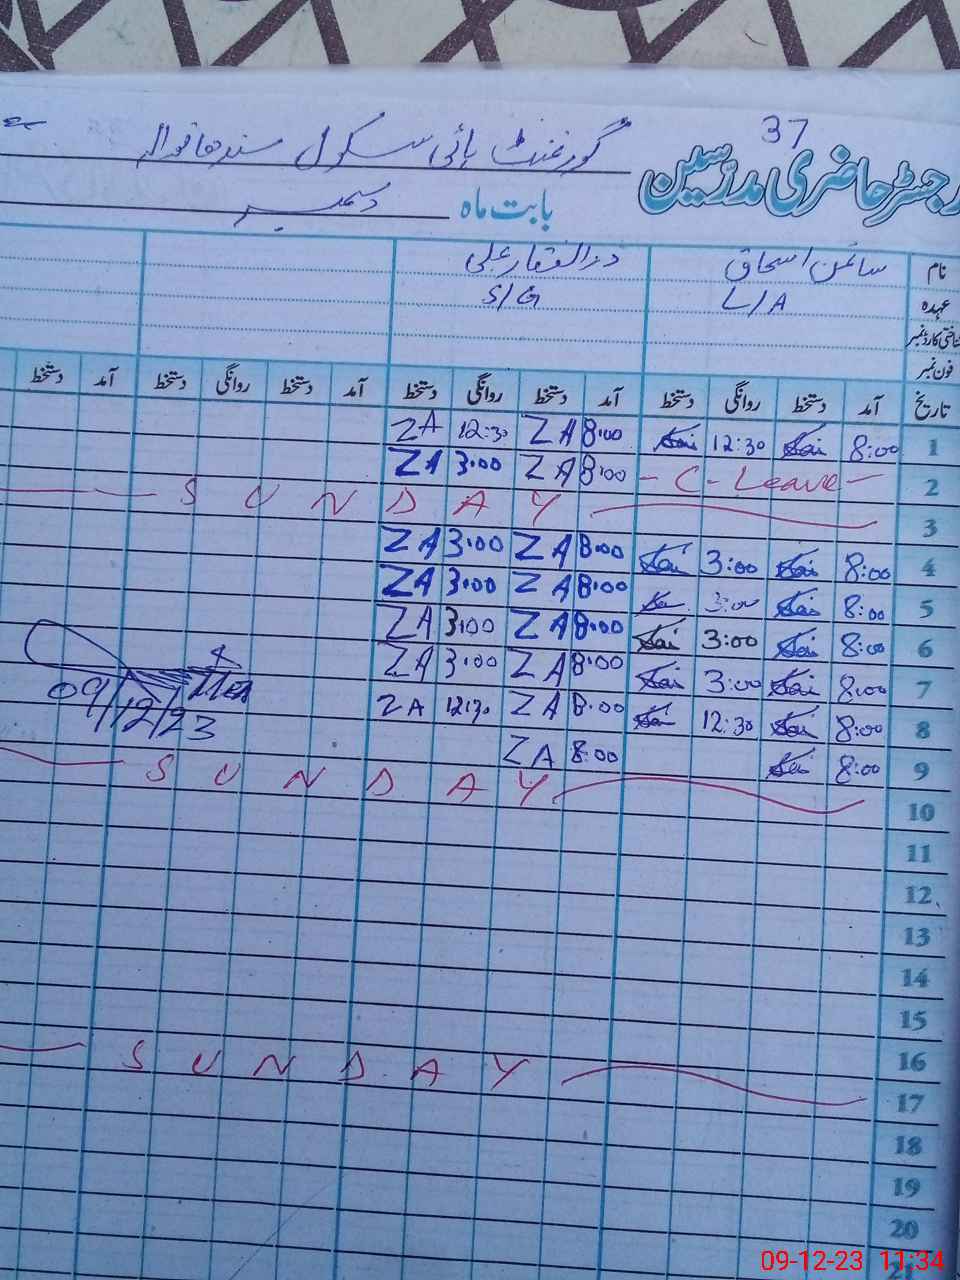 37
رجسٹر حاضری مدرسین گورنمنٹ ہائی سکول
بابت ماہ دسمبر
نام سائمن اسحاق ذوالفقار علی
عہدہ L/A S/G
شناختی کارڈ نمبر
فون نمبر
تاریخ آمد دستخط روانگی دستخط آمد دستخط روانگی دستخط آمد دستخط روانگی دستخط آمد دستخط
1 8:00 Sai 12:30 Sai 8:00 ZA 12:30 ZA
2 - C - Leave - 8:00 ZA 3:00 ZA
3 SUNDAY
4 8:00 Sai 3:00 Sai 8:00 ZA 3:00 ZA
5 8:00 Sai 3:00 Sai 8:00 ZA 3:00 ZA
6 8:00 Sai 3:00 Sai 8:00 ZA 3:00 ZA
7 8:00 Sai 3:00 Sai 8:00 ZA 3:00 ZA
8 8:00 Sai 12:30 Sai 8:00 ZA 12:30 ZA
9 8:00 Sai 8:00 ZA
09/12/23
10 SUNDAY
11
12
13
14
15
16
17 SUNDAY
18
19
20
09-12-23 11:34